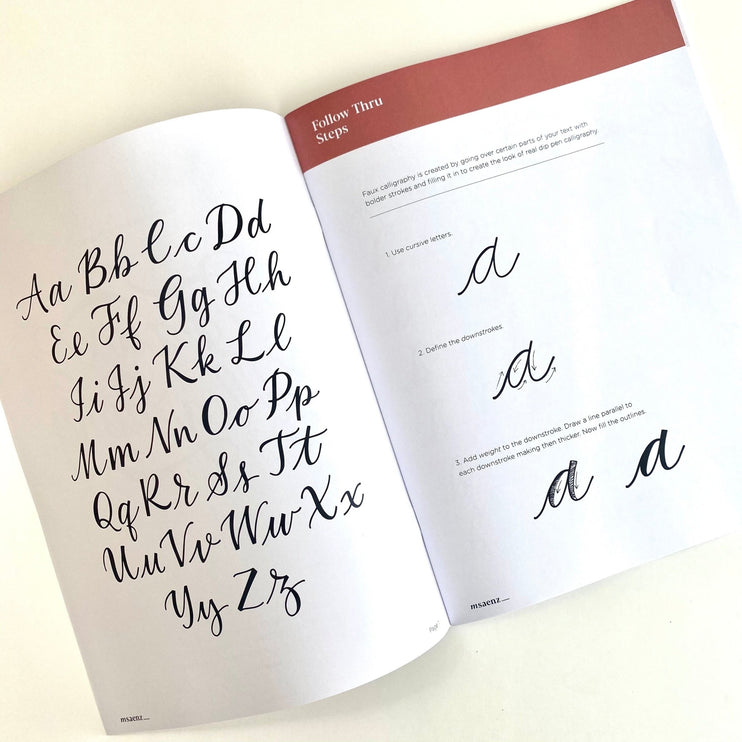 Aa Bb Cc Dd
Ee Ff Gg Hh
Ii Jj Kk Ll
Mm Nn Oo Pp
Qq Rr Ss Tt
Uu Vv Ww Xx
Yy Zz
msaenz__
Follow Thru
Steps
Faux calligraphy is created by going over certain parts of your text with
bolder strokes and filling it in to create the look of real dip pen calligraphy.
1. Use cursive letters.
a
2. Define the downstrokes.
a
3. Add weight to the downstroke. Draw a line parallel to
each downstroke making then thicker. Now fill the outlines.
a a
msaenz__